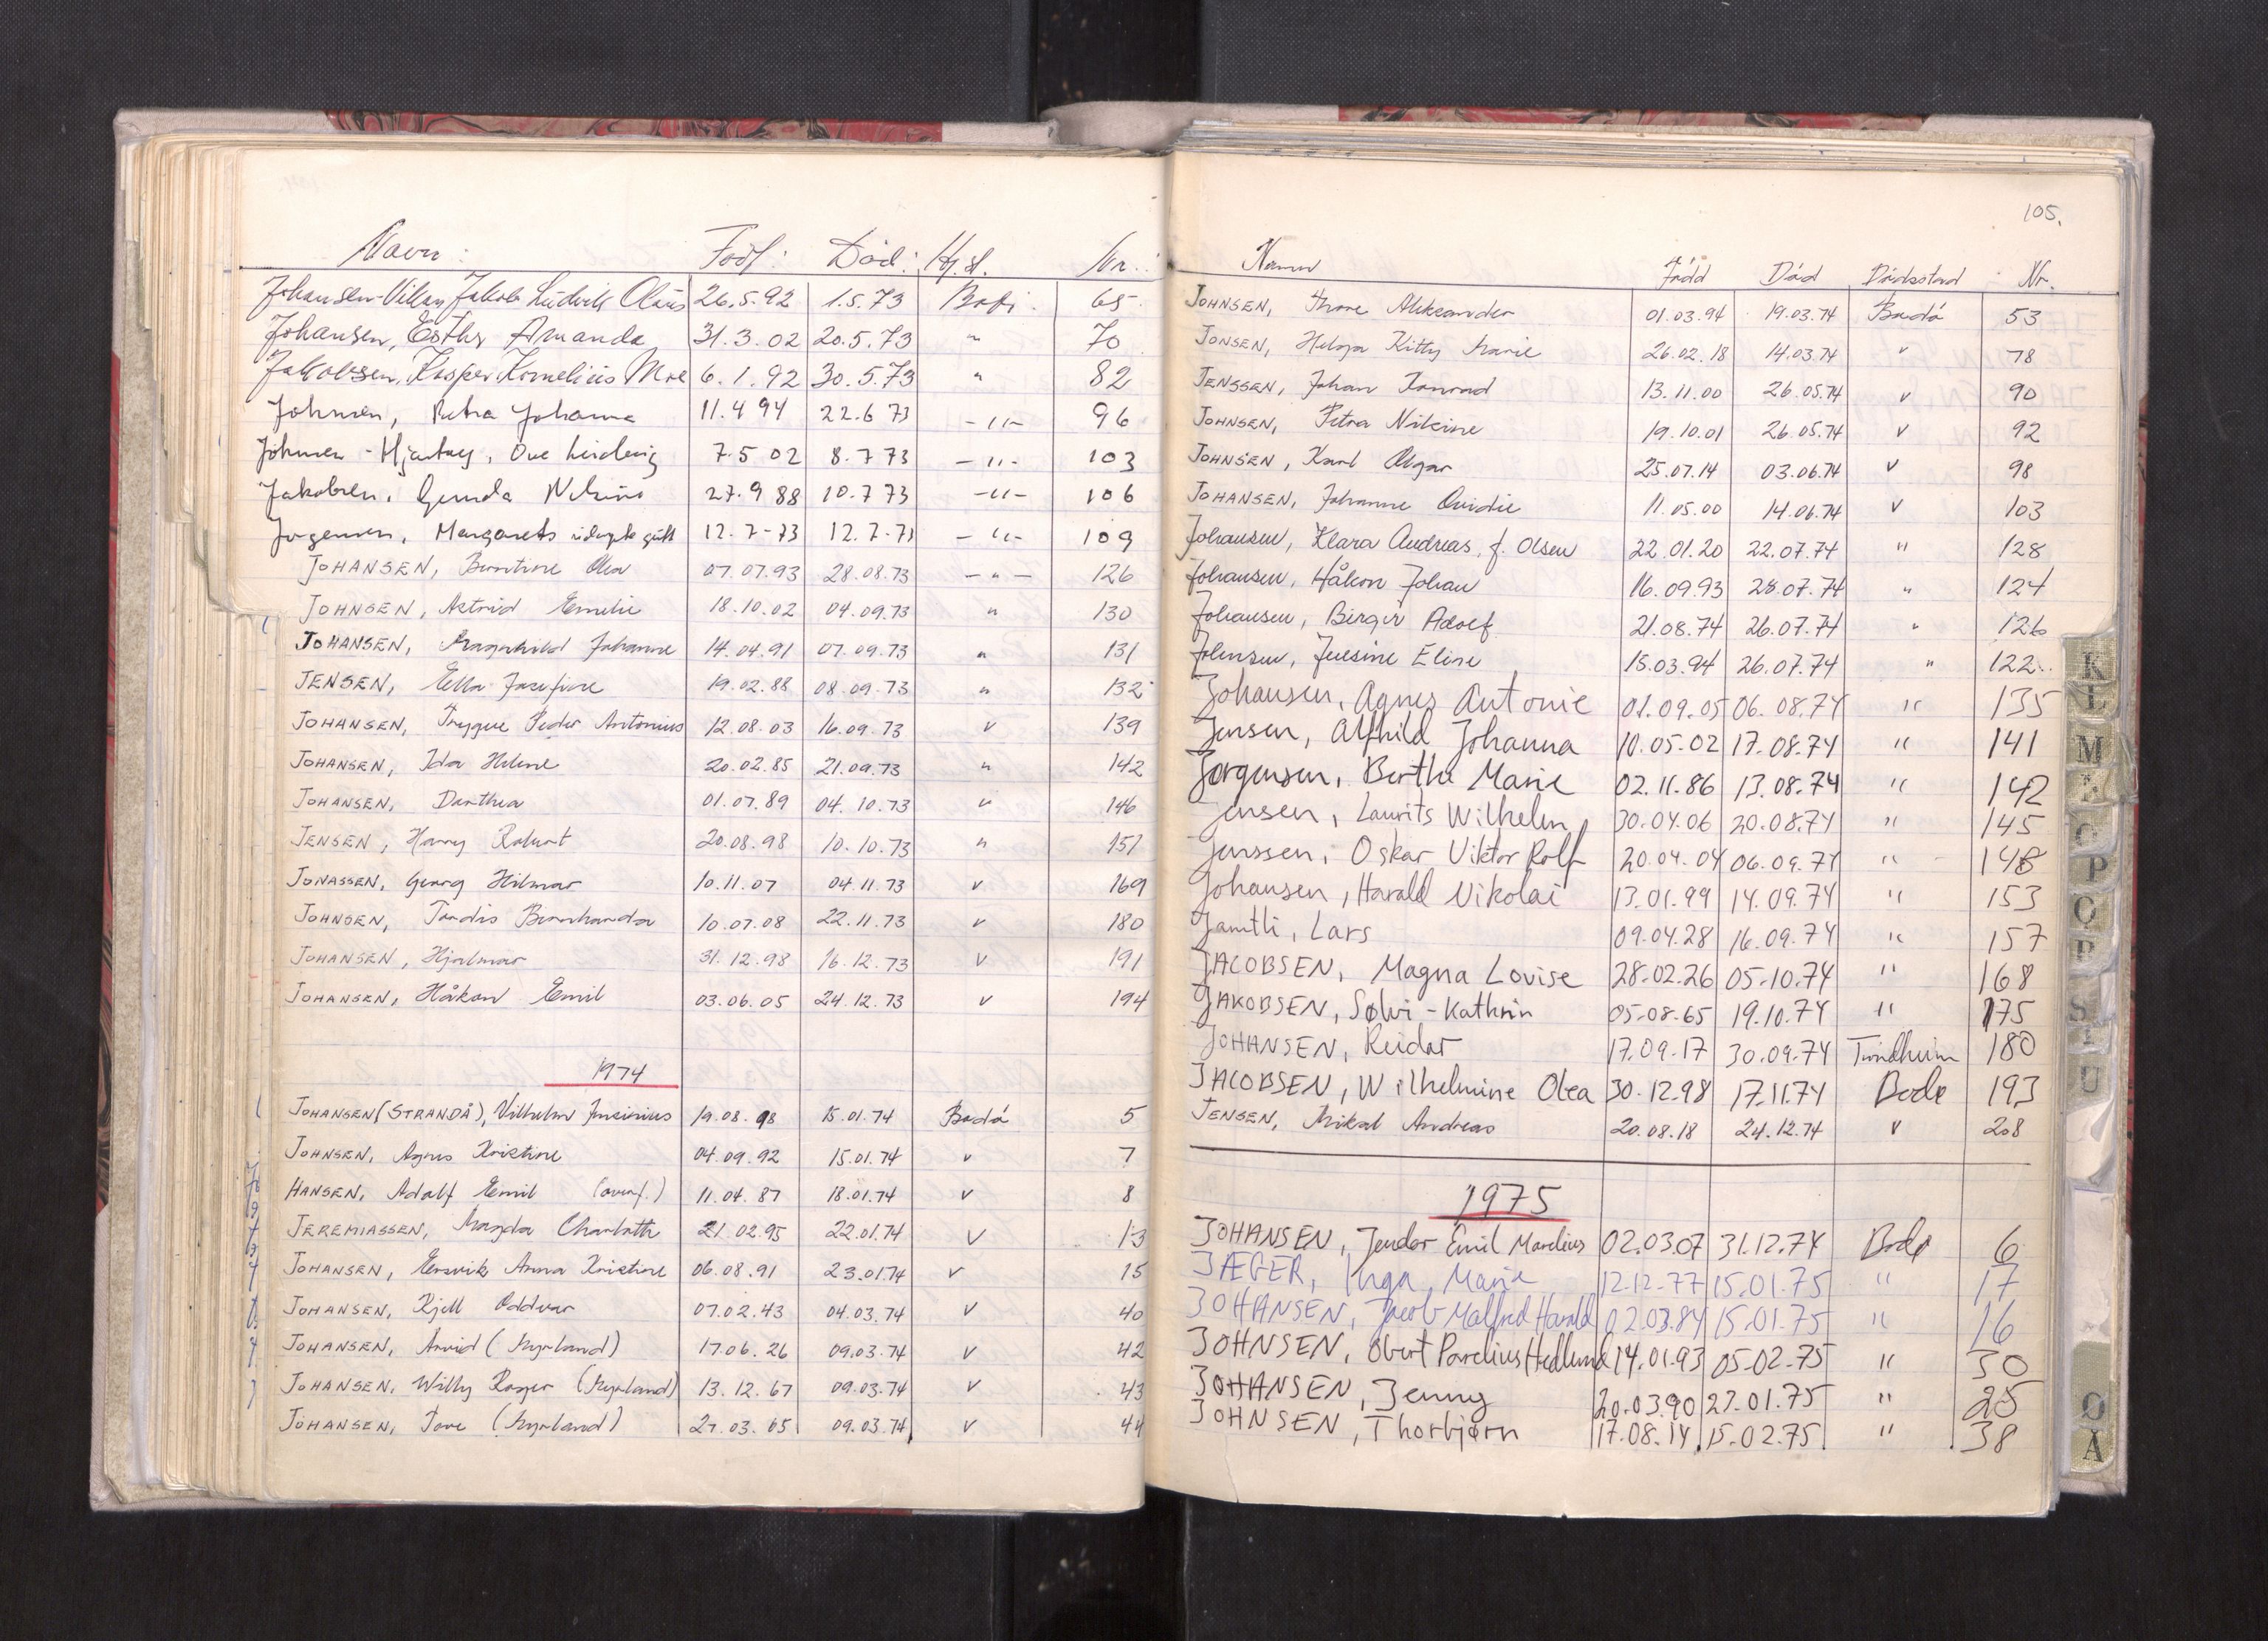 Navn: Født: Død: Hj.st. Nr.:
Johansen-Vikan Jakob Ludvik Olaus 26.5.92 1.5.73 65
Johansen, Esther Amanda 31.3.02 20.5.73 " 70
Jakobsen, Kasper Kornelius Moe 6.1.92 30.5.73 " 82
Johnsen, Petra Johanna 11.4 94 22.6 73 -"- 96
Johnsen - Hjartøy, Ove Ludvig 7.5 02 8.7 73 -"- 103
Jakobsen, Gunda 27.9 88 10.7 73 -"- 106
Jørgensen, Margarets udøpte gutt 12.7-73 12.7-73 -"- 109
JOHANSEN, Berntine Olea 07.07.93 28.08.73 -"- 126
JOHNSEN, Astrid Emelie 18.10.02 04.09.73 " 130
JOHANSEN, Ragnhild Johanne 14.04.91 07.09.73 " 131
JENSEN, Ella Josefine 19.02.88 08.09.73 " 132
JOHANSEN, Trygve Peder Antonius 12.08.03 16.09.73 v 139
JOHANSEN, Ida Helene 20.02.85 21.09.73 " 142
JOHANSEN, Dorthea 01.07.89 04.10.73 v 146
JENSEN, Harry Robert 20.08.98 10.10.73 " 151
JONASSEN, Georg Hilmar 10.11.07 04.11.73 v 169
JOHNSEN, Tordis Bernharda 10.07.08 22.11.73 v 180
JOHANSEN, Hjalmar 31.12.98 16.12.73 v 191
JOHANSEN, Håkon Emil 03.06.05 24.12.73 v 194
1974
JOHANSEN (STRANDÅ), Vilhelm 19.08.98 15.01.74 Bodó 5
JOHNSEN, Agnes Kristine 04.09.92 15.01.74 v 7
HANSEN, Adolf Emil (overf.) 11.04.87 18.01.74 v 8
JEREMIASSEN, Magda Charlotte 21.02.95 22.01.74 v 13
JOHANSEN, Ersvik Anna Kristine 06.08.91 23.01.74 v 15
JOHANSEN, Kjell Oddvar 07.02.43 04.03.74 v 40
JOHANSEN, Arvid (Myrland) 17.06.26 09.03.74 v 42
JOHANSEN, Willy Roger (Myrland) 13.12.67 09.03.74 v 43
JOHANSEN, Tove (Myrland) 27.03.65 09.03.74 v 44
105.
Namn Fódd Dód Dódsstad Nr.
JOHNSEN, Thore Aleksander 01.03.94 19.03.74 Bodó 53
JONSEN, Helga Kitty Marie 26.02.18 14.03.74 v 78
JENSSEN, Johan Konrad 13.11.00 26.05.74 v 90
JOHNSEN, Petra Nikine 19.10.01 26.05.74 v 92
JOHNSEN, Karl Algar 25.07.14 03.06.74 v 98
JOHANSEN, Johanne Ovidie 11.05.00 14.06.74 v 103
Johansen, Klara Andreas, f. Olsen 22.01.20 22.07.74 " 128
Johansen, Håkon Johan 16.09.93 28.07.74 " 124
Johansen, Birger Adolf 21.08.74 26.07.74 " 126
Johnsen, Julsine Eline 15.03.94 26.07.74 " 122
Johansen, Agnes Antonie 01.09.05 06.08.74 " 135
Jensen, Alfhild Johanna 10.05.02 17.08.74 " 141
Jørgensen, Berthe Marie 02.11.86 13.08.74 " 142
Jensen, Laurits Wilhelm 30.04.06 20.08.74 " 145
Jenssen, Oskar Viktor Rolf 20.04.04 06.09.74 " 148
Johansen, Harald Nikolai 13.01.99 14.09.74 " 153
Jamtli, Lars 09.04.28 16.09.74 " 157
JACOBSEN, Magna Lovise 28.02.26 05.10.74 " 168
JAKOBSEN, Sølvi-Kathrin 05.08.65 19.10.74 " 175
JOHANSEN, Reidar 17.09.17 30.09.74 Trondheim 180
JACOBSEN, Wilhelmine Olea 30.12.98 17.11.74 Bodø 193
JENSEN, Mikal Andreas 20.08.18 24.12.74 v 208
1975
JOHANSEN, Jendor Emil Marelius 02.03.07 31.12.74 Bodø 6
JÆGER, Inga Marie 12.12.77 15.01.75 " 17
JOHANSEN, Jacob Malfred Harald 02.03.84 15.01.75 " 16
JOHNSEN, Obert Parelius Hedlund 14.01.93 05.02.75 " 30
JOHANSEN, Jenny 20.03.90 27.01.75 " 25
JOHNSEN, Thorbjørn 17.08.14 15.02.75 " 38
K
L
M
N
O
P
Q
R
S
T
U
Ø
Å